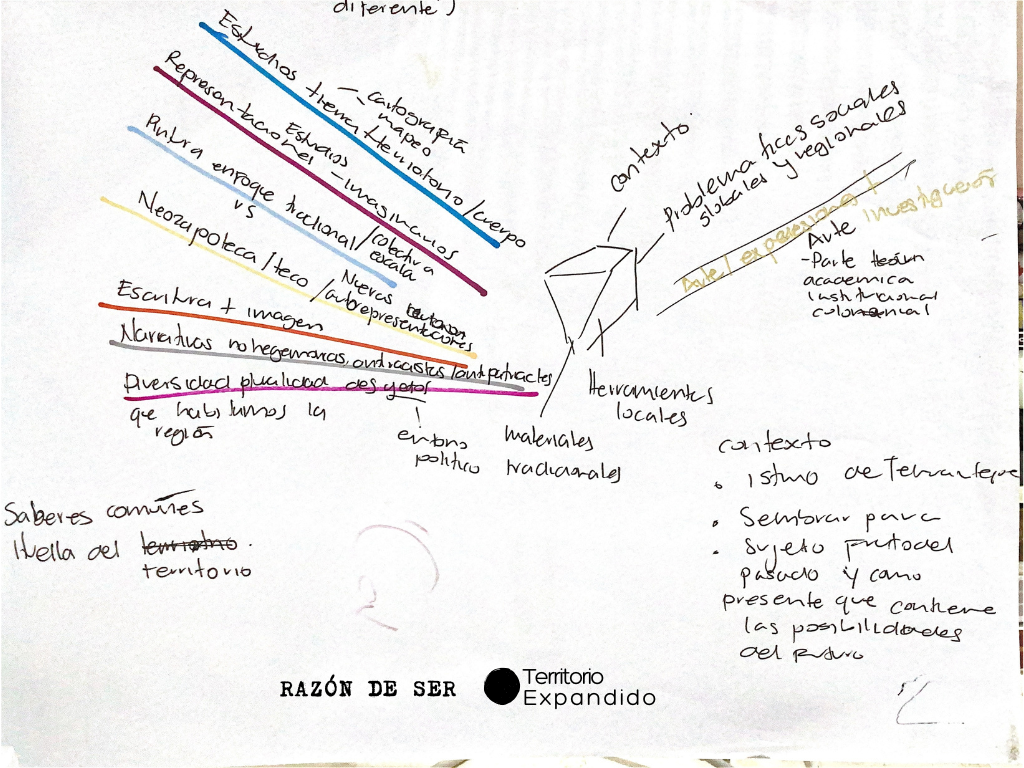 diferente)
Estudios tierra/territorio/cuerpo
- cartografía
mapeo
Representaciones - imaginarios
Estudios
Pintura enfoque tradicional/colectiva
vs
escala
Neozapoteca/teco/autorepresentaciones
Nuevas
Escritura + imagen
Narrativas no hegemónicas, antiracistas/
Diversidad pluralidad de sujetos
que habitamos la
región
entorno
político
contexto
Problemáticas sociales
globales y regionales
Arte/expresiones +
Arte investigación
- Parte
académica
institucional
colonial
Herramientas
locales
materiales
tradicionales
contexto
• istmo de Tehuantepec
• Sembrar para
• Sujeto fruto del
pasado y como
presente que contiene
las posibilidades
del futuro
Saberes comunes
Huella del territorio
territorio
RAZÓN DE SER
Territorio
Expandido